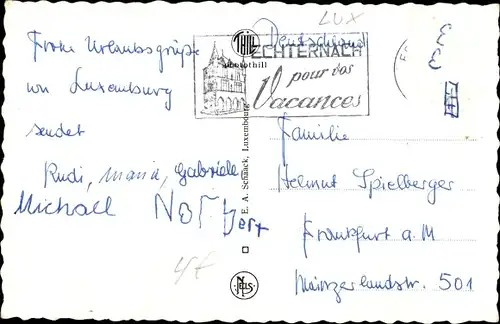 Frohe Urlaubsgrüße
von Luxemburg
sendet
Rudi, Maria, Gabriele
Michael Norbert
LUX
Deutschland
THILL
photothill
ECHTERNACH
pour vos
Vacances
E. A. Schaack, Luxembourg
NELS
Familie
Helmut Spielberger
Frankfurt a. M
Mainzerlandstr. 501